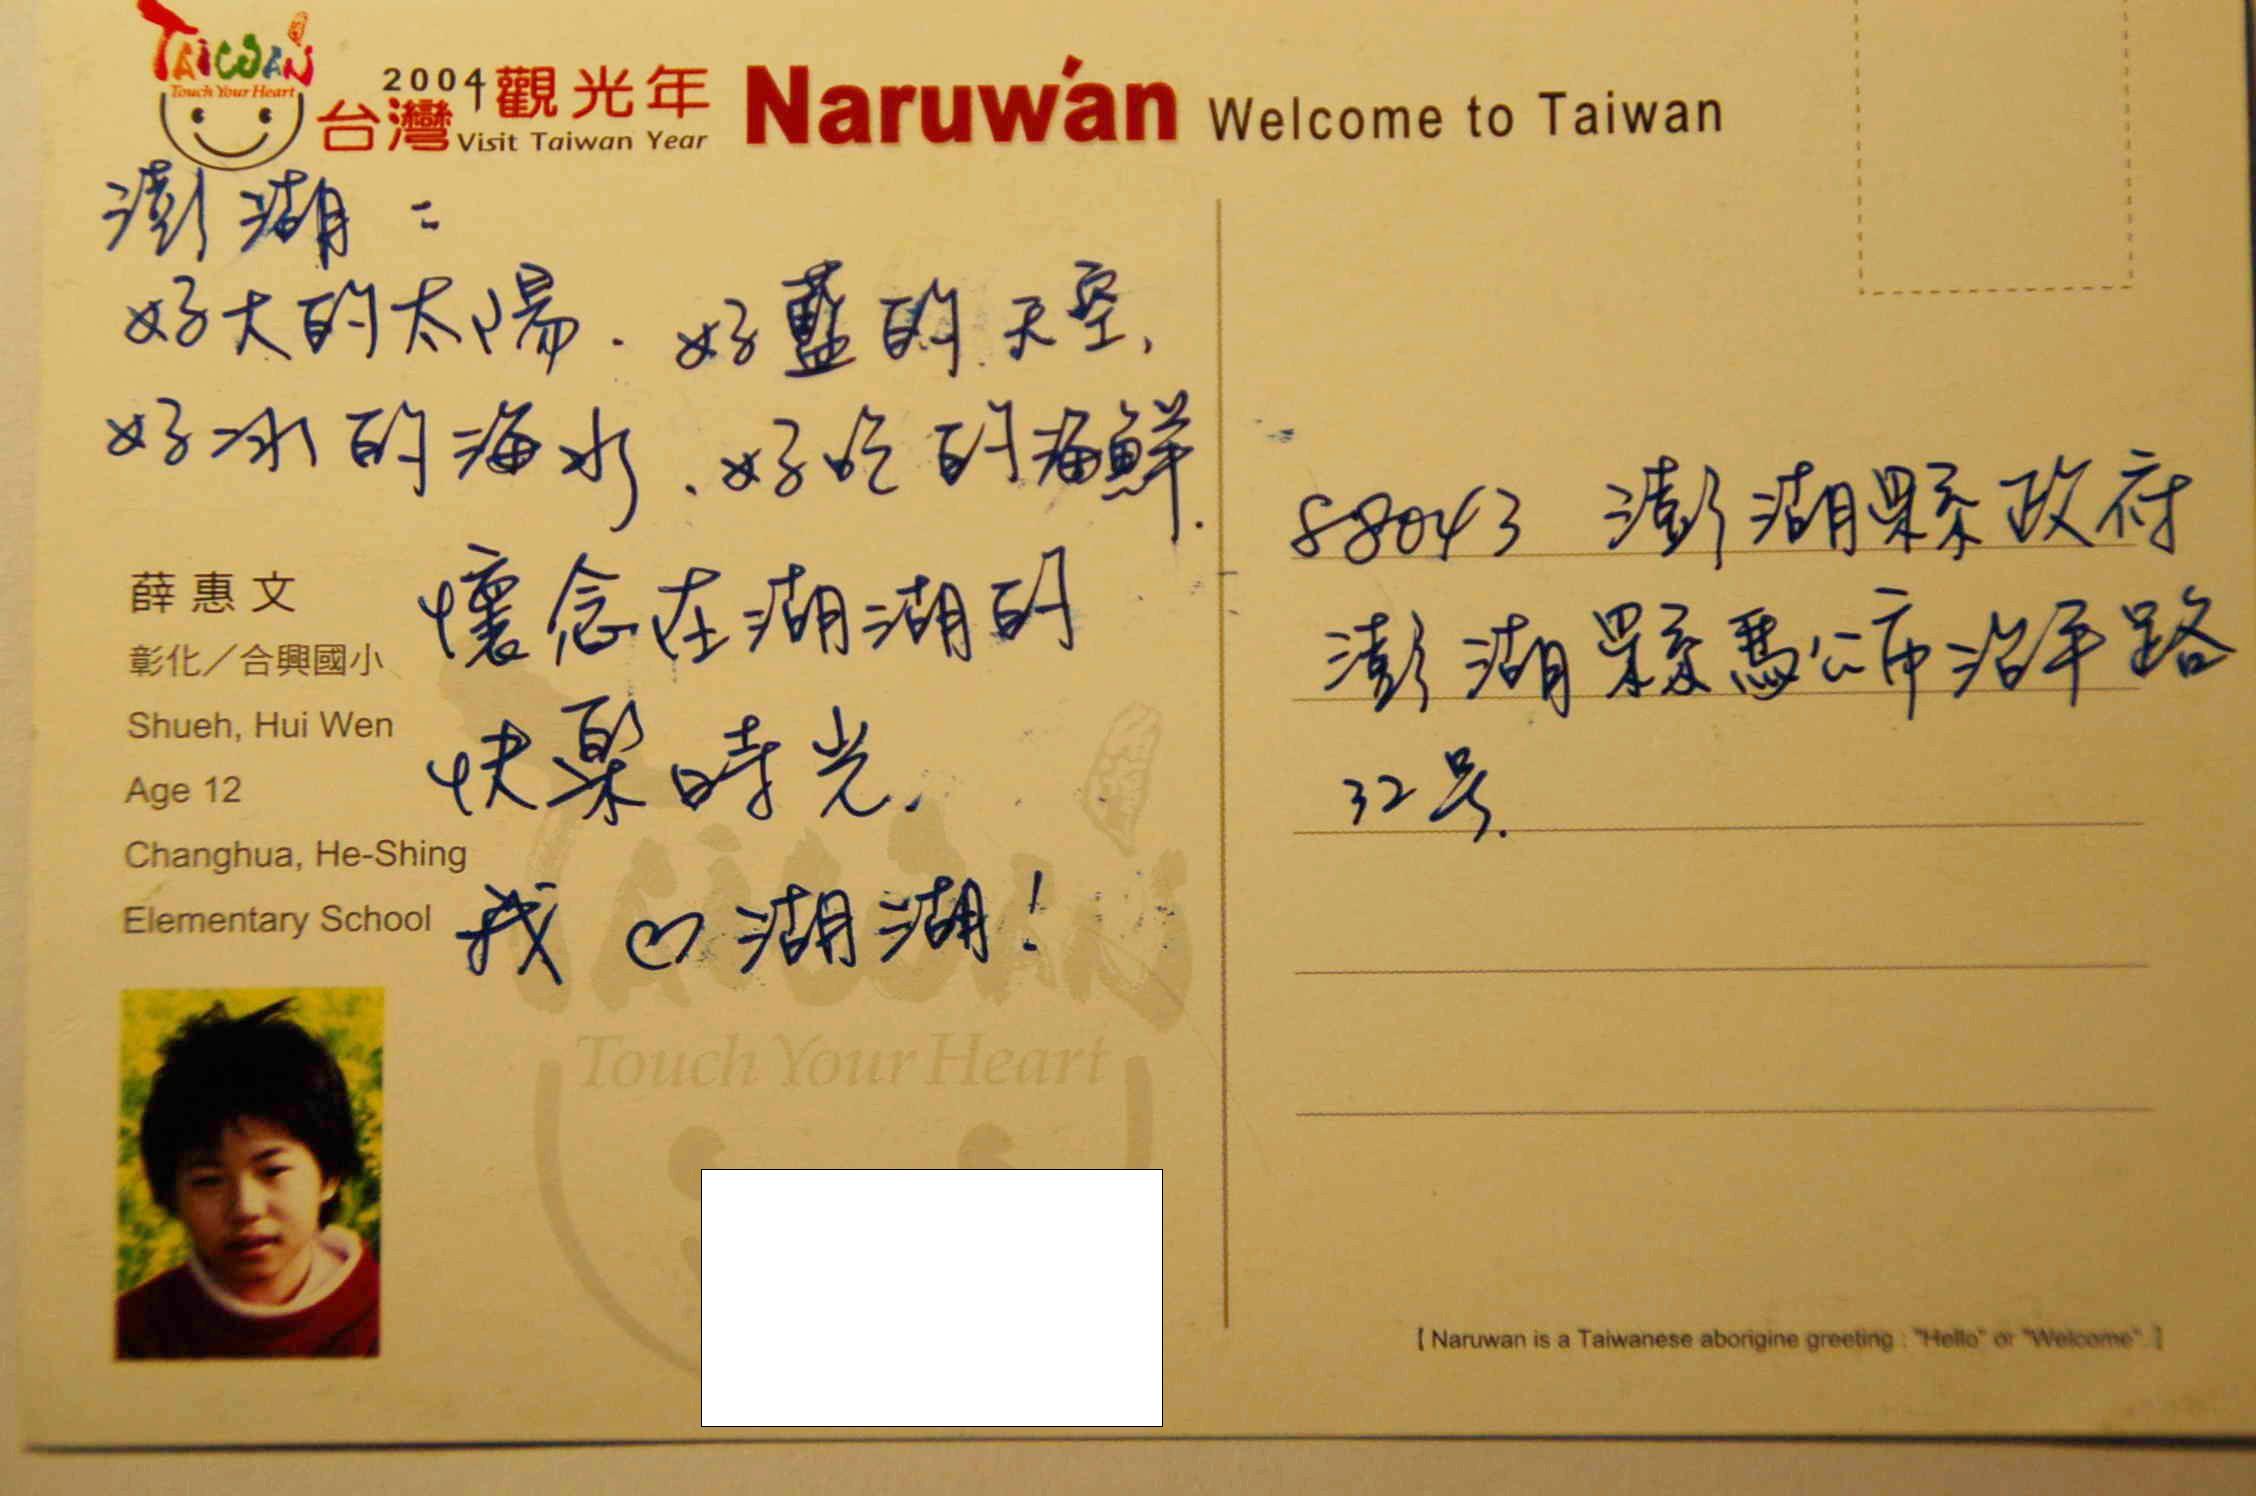 TAIWAN
Touch Your Heart
2004
台灣觀光年
Visit Taiwan Year
Naruwan Welcome to Taiwan
澎湖：
好大的太陽．好藍的天空、
好冰的海水、好吃的海鮮．
懷念在湖湖的
快樂時光．
我♡湖湖！
薛惠文
彰化／合興國小
Shueh, Hui Wen
Age 12
Changhua, He-Shing
Elementary School
TAIWAN
Touch Your Heart
88043 澎湖縣政府
澎湖縣馬公市治平路
32号.
【Naruwan is a Taiwanese aborigine greeting : "Hello" or "Welcome".】